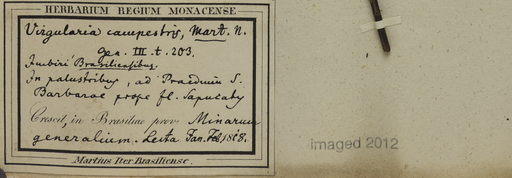 HERBARIUM REGIUM MONACENSE
Virgularia campestris, Mart. N.
Gen. III. t. 203.
Brasiliensibus.
In palustribus, ad Praedium S.
Barbarae prope fl. Sapucahy
Crescit, in Brasiliae prov. Minarum
generalium. Lecta Jan. Feb. 1818.
Martius Iter Brasiliense.
imaged 2012